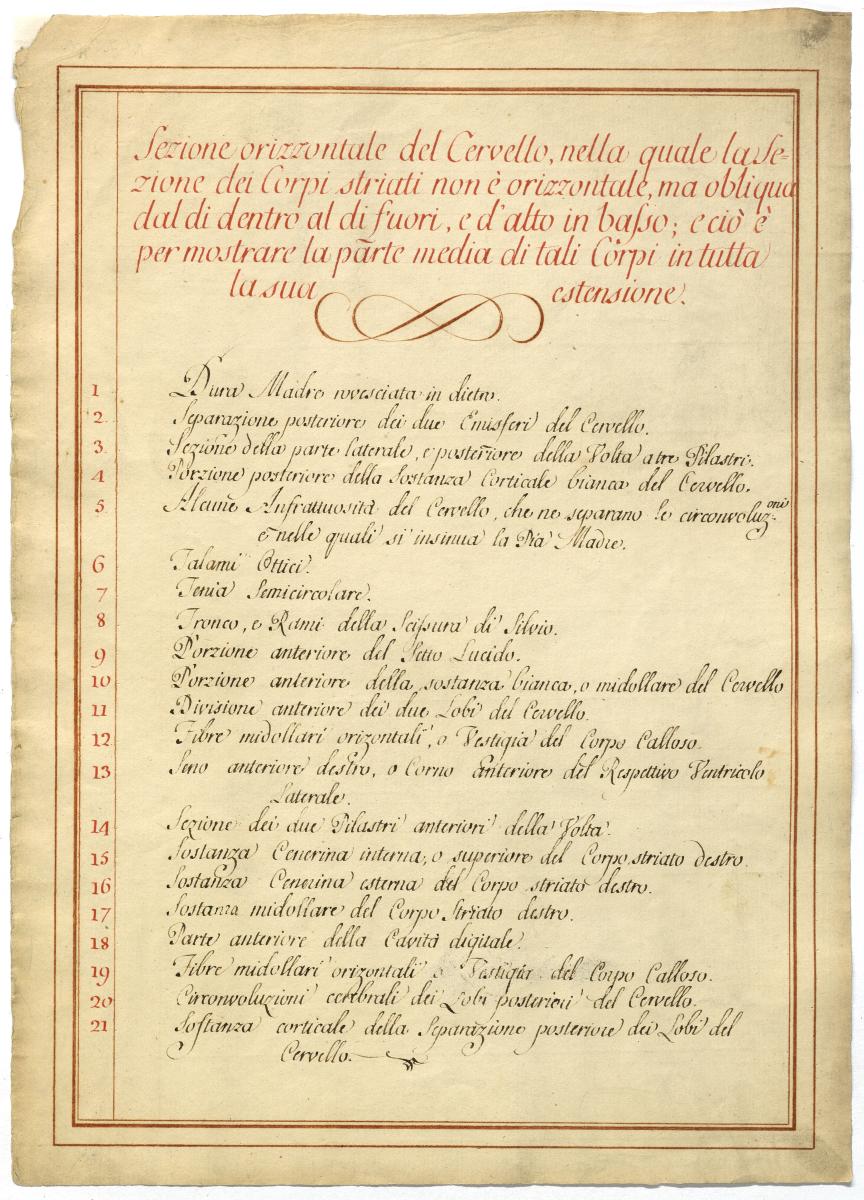 Sezione orizzontale del Cervello, nella quale la Se=
zione dei Corpi striati non è orizzontale, ma obliqua
dal di dentro al di fuori, e d'alto in baſso; e ciò è
per mostrare la parte media di tali Corpi in tutta
la sua estensione.
1 Dura Madre rovesciata in dietro.
2 Separazione posteriore dei due Emisferi del Cervello.
3 Sezione della parte laterale, e posteriore della Volta a tre Pilastri.
4 Porzione posteriore della Sostanza Corticale bianca del Cervello.
5 Alcune Anfrattuosità del Cervello, che ne separano le circonvoluz:oni
e nelle quali si insinua la Pia Madre.
6 Talami Ottici.
7 Tenia Semicircolare.
8 Tronco, e Rami della Sciſsura di Silvio.
9 Porzione anteriore del Setto Lucido.
10 Porzione anteriore della sostanza bianca, o midollare del Cervello
11 Divisione anteriore dei due Lobi del Cervello.
12 Fibre midollari orizontali, o Vestigia del Corpo Calloso.
13 Seno anteriore destro, o Corno anteriore del Respettivo Ventricolo
Laterale.
14 Sezione dei due Pilastri anteriori della Volta.
15 Sostanza Cenerina interna, o superiore del Corpo striato destro.
16 Sostanza Cenerina esterna del Corpo striato destro.
17 Sostanza midollare del Corpo Striato destro.
18 Parte anteriore della Cavità digitale.
19 Fibre midollari orizontali o Vestigia del Corpo Calloso.
20 Circonvoluzioni cerebrali dei Lobi posteriori del Cervello.
21 Soſtanza corticale della Separazione posteriore dei Lobi del
Cervello.